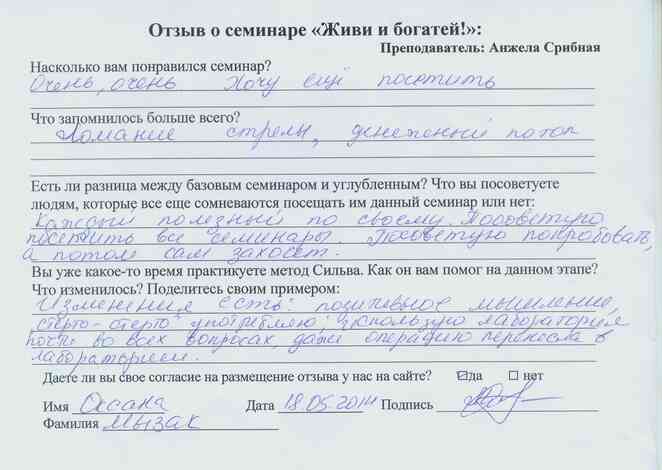 Отзыв о семинаре «Живи и богатей!»:
Преподаватель: Анжела Срибная
Насколько вам понравился семинар?
Очень, очень Хочу ещё посетить
Что запомнилось больше всего?
Ломание стрелы, денежный поток
Есть ли разница между базовым семинаром и углубленным? Что вы посоветуете
людям, которые все еще сомневаются посещать им данный семинар или нет:
Каждый полезный по своему. Посоветую
посетить все семинары. Посоветую попробовать,
а потом сам захочет.
Вы уже какое-то время практикуете метод Сильва. Как он вам помог на данном этапе?
Что изменилось? Поделитесь своим примером:
Изменения есть: позитивное мышление,
стёрто-стёрто употребляю, использую лабораторию
почти во всех вопросах, даже операцию перенесла в
лаборатории.
Даете ли вы свое согласие на размещение отзыва у нас на сайте? да нет
Имя Оксана Дата 18.05.2014 Подпись
Фамилия Мызак